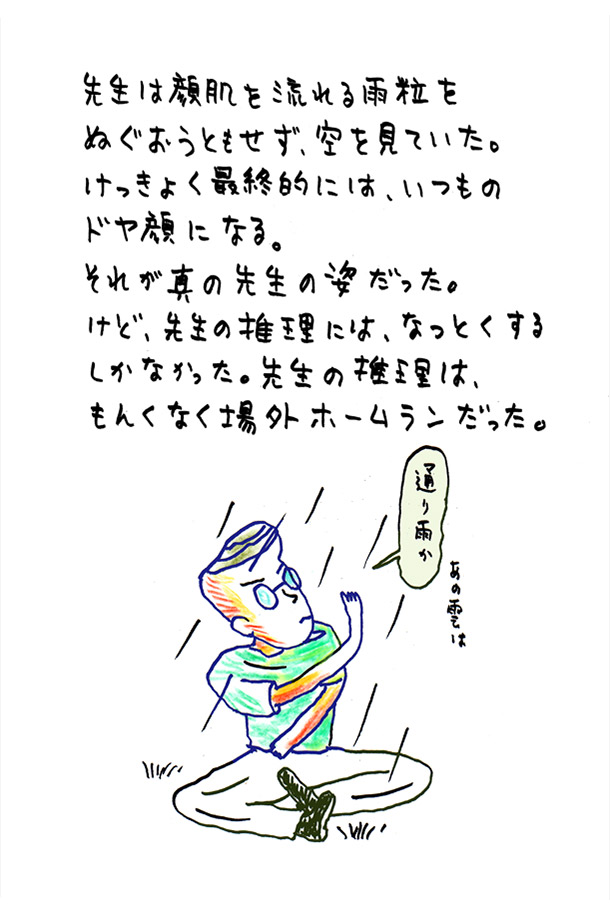 先生は顔肌を流れる雨粒を
ぬぐおうともせず、空を見ていた。
けっきょく最終的には、いつもの
ドヤ顔になる。
それが真の先生の姿だった。
けど、先生の推理には、なっとくする
しかなかった。先生の推理は、
もんくなく場外ホームランだった。
通り雨か
あの雲は